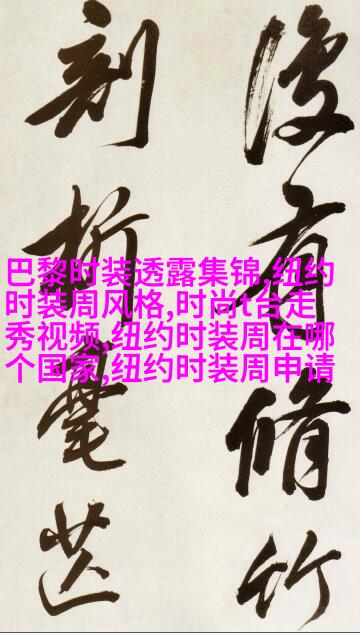 有脩竹
刻
巴黎时装透露集锦,纽约
时装周风格,时尚t台走
秀视频,纽约时装周在哪
个国家,纽约时装周申请